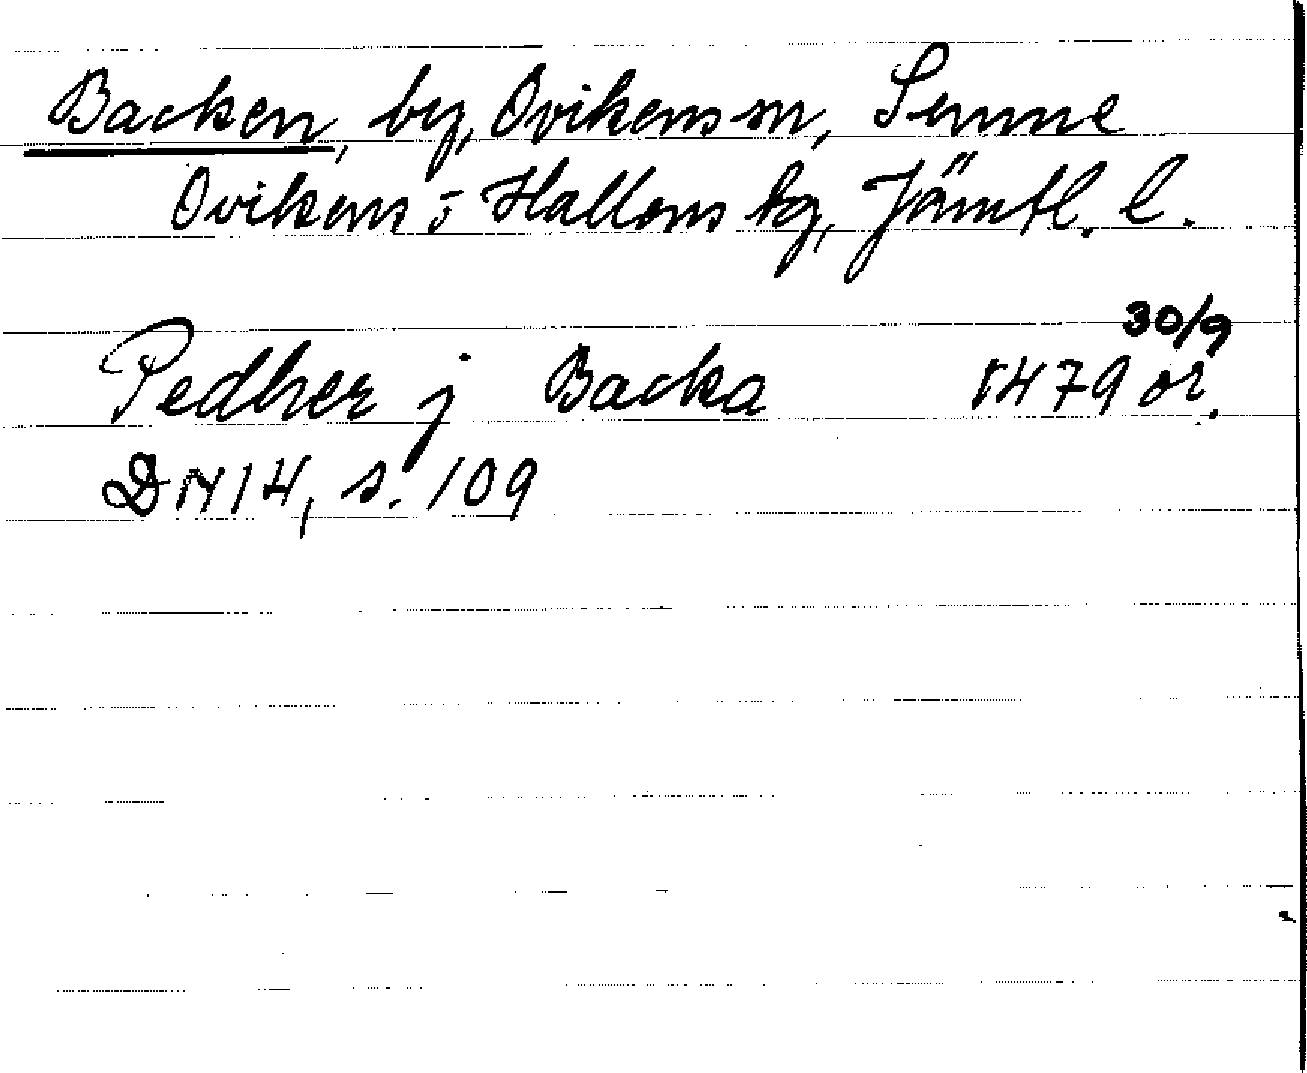 Backen, by, Ovikens sn, Sunne
Ovikens o Hallens tg, Jämtl. l.
30/9
Pedher j Backa 1479 or.
DN 14, s. 109